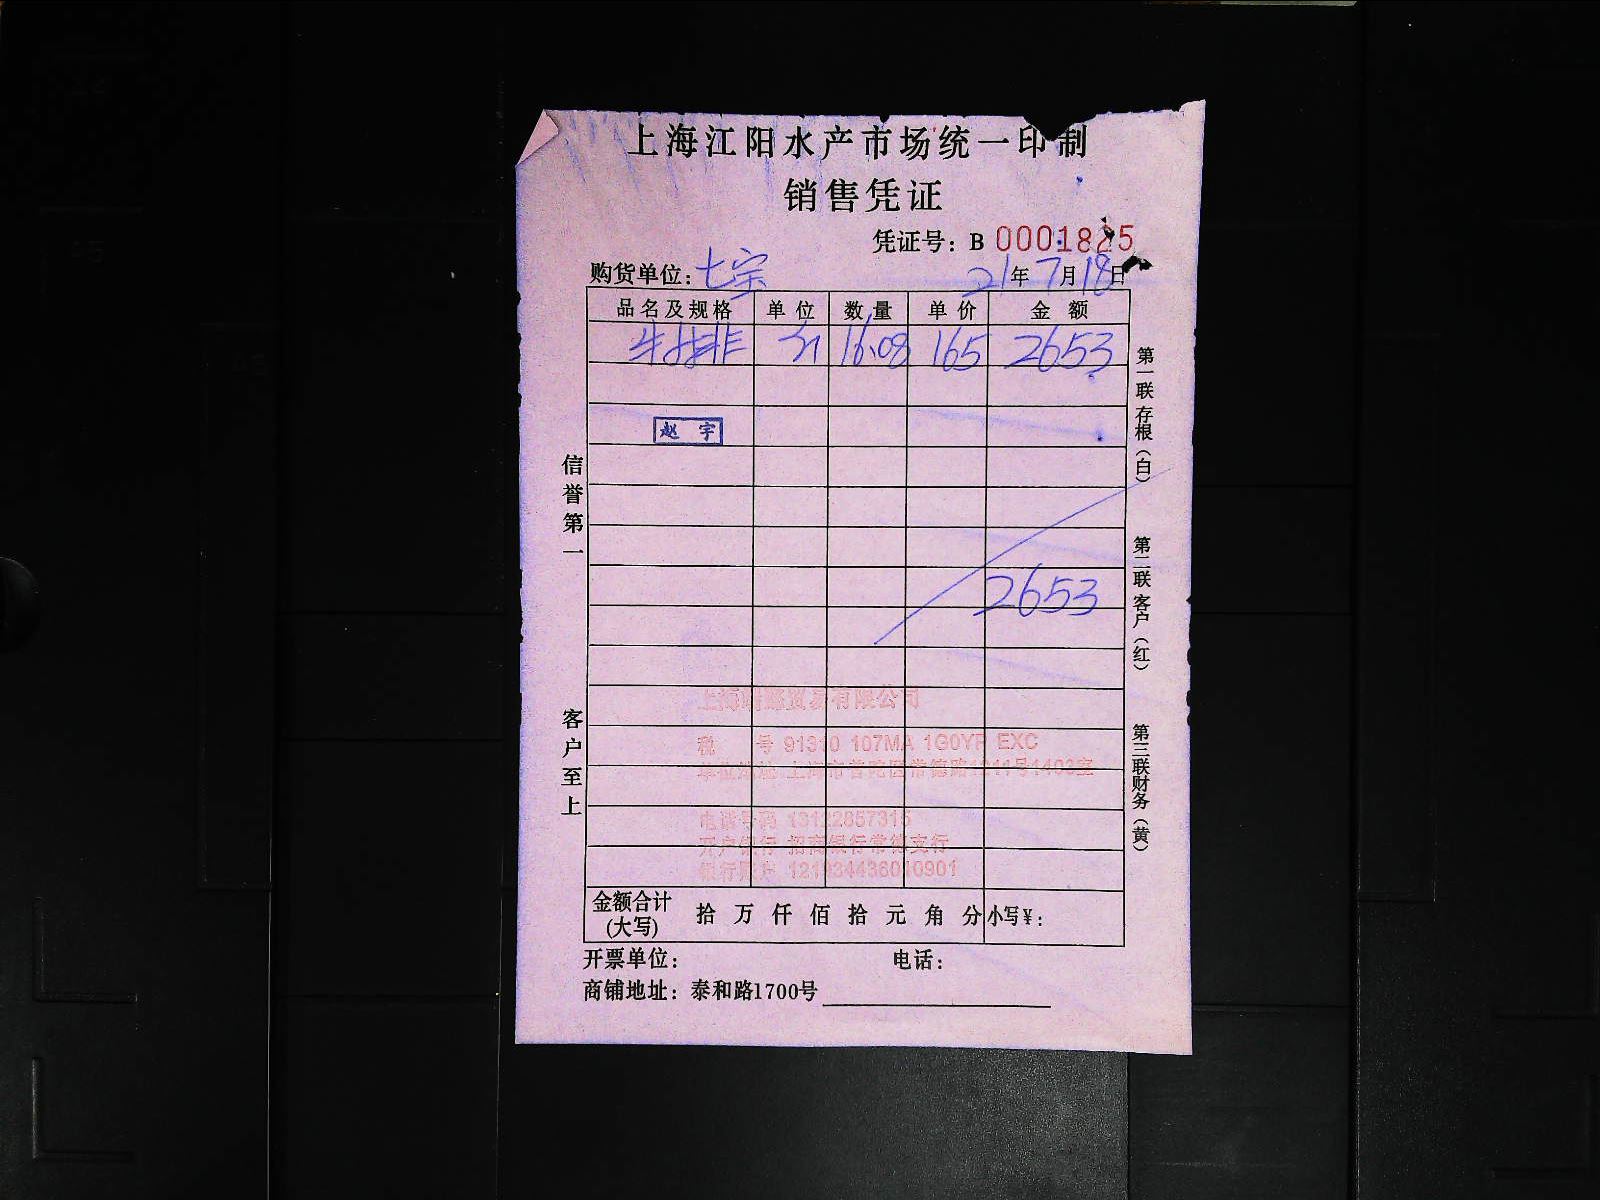 上海江阳水产市场统一印制
销售凭证
凭证号：B 0001885
购货单位：七宝 21年7月18日
品名及规格 单位 数量 单价 金额
牛排 斤 16.08 165 2653
赵宇
2653
信誉第一
客户至上
第一联存根（白）
第二联客户（红）
第三联财务（黄）
贸易有限公司
税 号 91310 107MA 1G0YF EXC
单位地址 上海市普陀区常德路1211号1403室
电话号码 13122857315
开户银行 招商银行常德支行
银行账户 121934436010901
金额合计(大写) 拾 万 仟 佰 拾 元 角 分 小写¥：
开票单位： 电话：
商铺地址：泰和路1700号